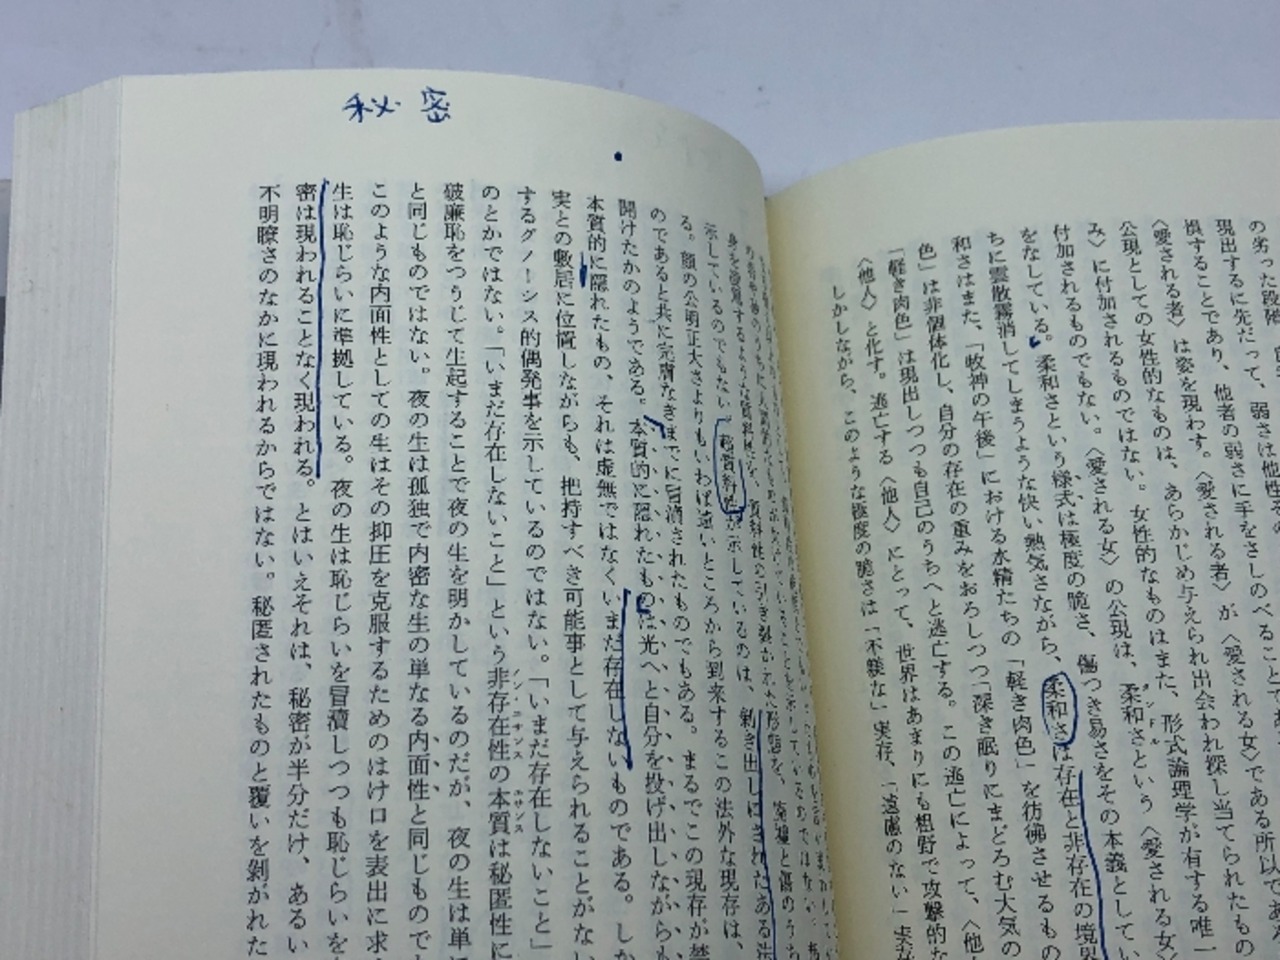 の劣った段階
現出するに先だって、弱さは他性そ
誤することであり、他者の弱さに手をさしのべることであ
〈愛される者〉は姿を現わす。〈愛される者〉が〈愛される女〉である所以であ
公現としての女性的なものは、あらかじめ与えられ出会われ探し当てられたもの
み〉に付加されるものではない。女性的なものはまた、形式論理学が有する唯一
付加されるものでもない。〈愛される女〉の公現は、柔和さという〈愛される女
をなしている。柔和さという様式は極度の脆さ、傷つき易さをその本義としてい
ちに雲散霧消してしまうような快い熱気さながら、柔和さは存在と非存在の境界
和さはまた、「牧神の午後」における水精たちの「軽き肉色」を彷彿させるもの
色」は非個体化し、自分の存在の重みをおろしつつ「深き眠りにまどろむ大気の
「軽き肉色」は現出しつつも自己のうちへと逃亡する。この逃亡によって、〈他
〈他人〉と化す。逃亡する〈他人〉にとって、世界はあまりにも粗野で攻撃的な
しかしながら、このような極度の脆さは「不躾な」実存、「遠慮のない」実存
秘密
示しているのでもない。超質料性が示しているのは、剝き出しにされたある法
る。顔の公明正大さよりもいわば遠いところから到来するこの法外な現存は、
のであると共に完膚なきまでに冒瀆されたものでもある。まるでこの現存が禁
開けたかのようである。本質的に隠れたものは光へと自分を投げ出しながらも
本質的に隠れたもの、それは虚無ではなくいまだ存在しないものである。しか
実との敷居に位置しながらも、把持すべき可能事として与えられることがない
するグノーシス的偶発事を示しているのではない。「いまだ存在しないこと」
のとかではない。「いまだ存在しないこと」という非存在性の本質は秘匿性に
破廉恥をつうじて生起することで夜の生を明かしているのだが、夜の生は単に
と同じものではない。夜の生は孤独で内密な生の単なる内面性と同じもので
このような内面性としての生はその抑圧を克服するためのはけ口を表出に求
生は恥じらいに準拠している。夜の生は恥じらいを冒瀆しつつも恥じらいを
密は現われることなく現われる。とはいえそれは、秘密が半分だけ、あるい
不明瞭さのなかに現われるからではない。秘匿されたものと覆いを剝がれた